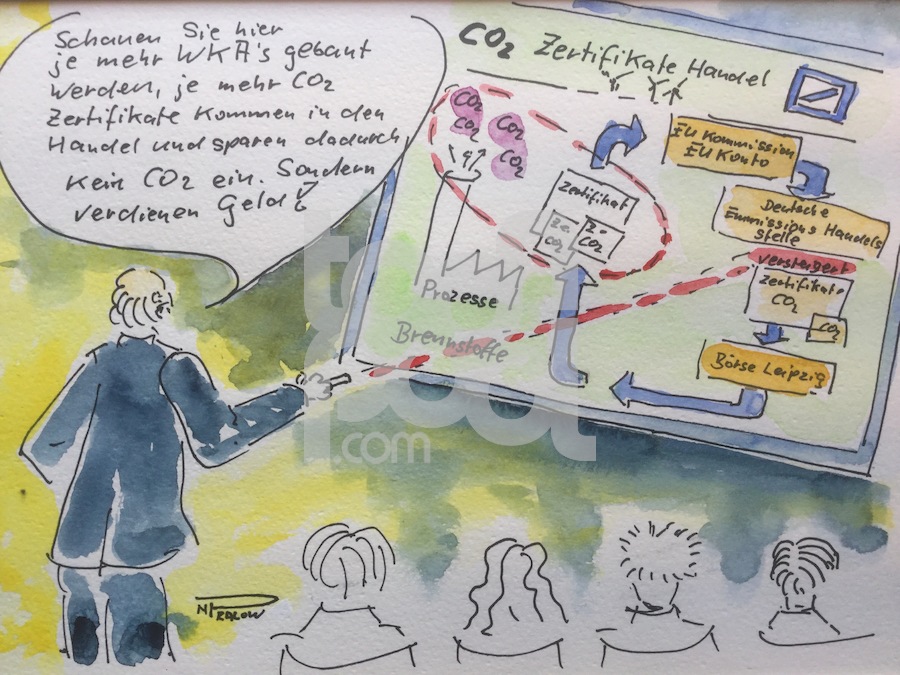 Schauen Sie hier
je mehr WKA's gebaut
werden, je mehr CO2
Zertifikate kommen in den
Handel und sparen dadurch
kein CO2 ein. Sondern
verdienen Geld!
CO2 Zertifikate Handel
CO2
CO2
CO2
CO2
Zertifikat
CO2
CO2
Prozesse
Brennstoffe
EU Kommission
EU Konto
Deutsche
Emmissions Handels
stelle
versteigert
Zertifikate
CO2
CO2
Börse Leipzig
toonpool
.com